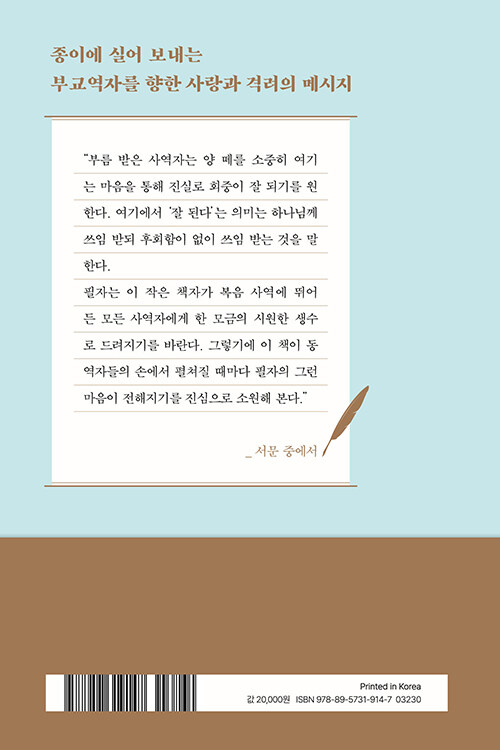 종이에 실어 보내는
부교역자를 향한 사랑과 격려의 메시지
“부름 받은 사역자는 양 떼를 소중히 여기
는 마음을 통해 진실로 회중이 잘 되기를 원
한다. 여기에서 ‘잘 된다’는 의미는 하나님께
쓰임 받되 후회함이 없이 쓰임 받는 것을 말
한다.
필자는 이 작은 책자가 복음 사역에 뛰어
든 모든 사역자에게 한 모금의 시원한 생수
로 드려지기를 바란다. 그렇기에 이 책이 동
역자들의 손에서 펼쳐질 때마다 필자의 그런
마음이 전해지기를 진심으로 소원해 본다.”
_ 서문 중에서
Printed in Korea
값 20,000원 ISBN 978-89-5731-914-7 03230